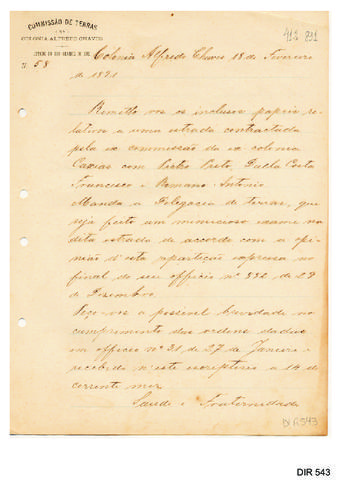 COMMISSÃO DE TERRAS
COLONIA ALFREDO CHAVES
ESTADO DO RIO GRANDE DO SUL
N. 58
Colonia Alfredo Chaves 18 de Fevereiro
de 1891
Remetto vos os inclusos papeis re-
lativos a uma estrada contractada
pela ex commissão da ex colonia
Caxias com Pedro Costa
Francisco e Romano Antonio.
Manda a Delegacia de terras, que
seja feito um minucioso exame na
dita estrada de accordo com a opi-
nião d'esta repartição expressa no
final do seu officio nº 332 de 29
de Dezembro.
Peço-vos a possivel brevidade no
cumprimento das ordens dadas
em officio nº 31 de 27 de Janeiro e
recebido n'este escriptorio a 14 do
corrente mez.
Saude e Fraternidade
DIR 543
DIR 543